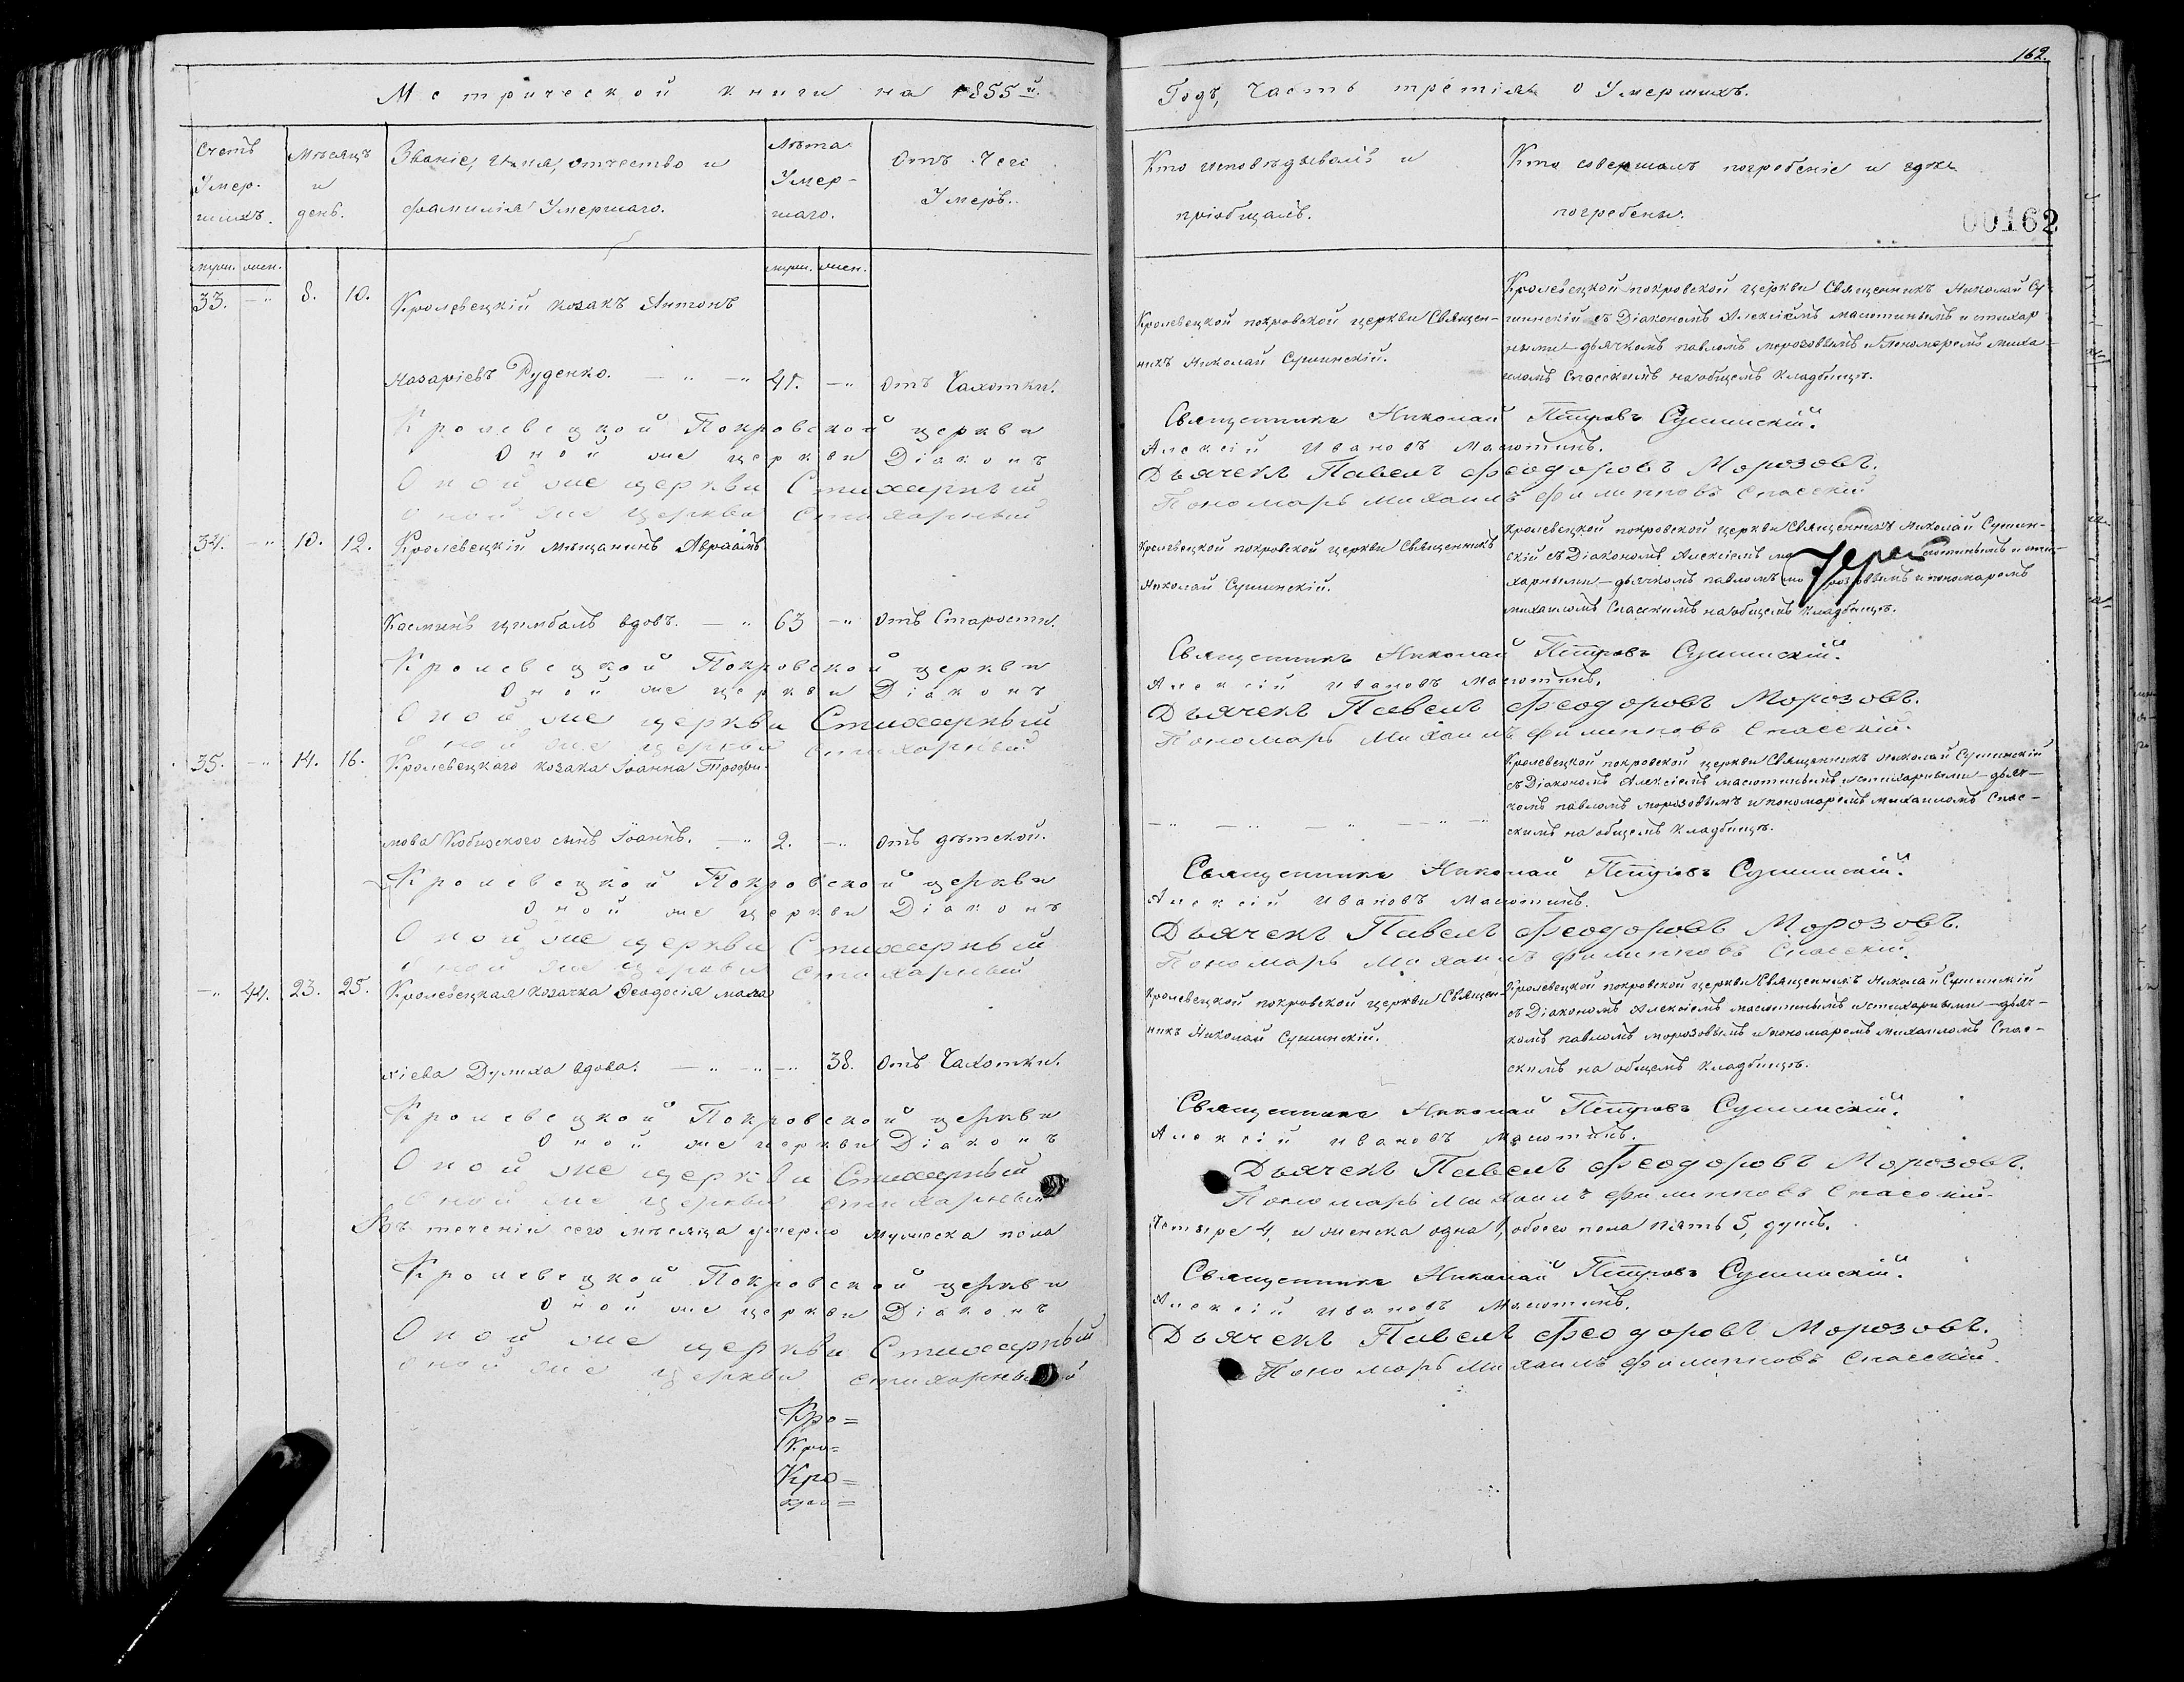 162.
Метрической книги на 1855й.
Годъ, Часть третія о Умершихъ.
Счетъ Умер-шихъ.
Мѣсяцъ и день.
Званіе, имя, отчество и
фамилія Умершаго.
Лѣта Умер-шаго.
Отъ Чего
Умеръ.
Кто исповѣдывалъ и
пріобщалъ.
Кто совершалъ погребеніе и гдѣ
погребены.
00162
муж. жен. муж. жен.
33. -" 8. 10. Кролевецкій козакъ Антонъ
Назаріевъ Руденко. — " — 41. —" Отъ Чахотки.
Кролевецкой покровской церкви Священ-
никъ Николай Сушинскій.
Кролевецкой покровской церкви Священникъ Николай Су-
шинскій съ Діакономъ Алексіемъ Масютинымъ и стихар-
ными—дьячкомъ павломъ морозовымъ и Пономаремъ миха-
иломъ Спасскимъ на общемъ Кладбищѣ.
Кролевецкой Покровской церкви Священникъ Николай Петровъ Сушинскій.
Оной же церкви Діаконъ Алексій Ивановъ Масютинъ.
Оной же церкви Стихарный Дьячекъ Павелъ Феодоровъ Морозовъ.
Оной же церкви стихарный Пономарь Михаилъ Филипповъ Спасскій.
34. -" 10. 12. Кролевецкій Мѣщанинъ Авраамъ
Касминъ Цимбалъ вдовъ. — " 63 —" Отъ Старости.
Кролевецкой покровской церкви Священникъ
Николай Сушинскій.
Кролевецкой покровской церкви Священникъ Николай Сушин-
скій съ Діакономъ Алексіемъ масютинымъ и сти-
харными—дьячкомъ павломъ морозовымъ и пономаремъ
михаиломъ Спасскимъ на общемъ Кладбищѣ.
Іерей
Кролевецкой Покровской церкви Священникъ Николай Петровъ Сушинскій.
Оной же церкви Діаконъ Алексій Ивановъ Масютинъ.
Оной же церкви Стихарный Дьячекъ Павелъ Феодоровъ Морозовъ.
Оной же церкви стихарный Пономарь Михаилъ Филипповъ Спасскій.
35. -" 14. 16. Кролевецкаго козака Іоанна Трофи-
мова Кобизского сынъ Іоаннъ. — " 2. —" Отъ дѣтской.
Кролевецкой покровской церкви Священникъ Николай Сушинскій
съ Діакономъ Алексіемъ масютинымъ и стихарными—дьяч-
комъ павломъ морозовымъ и пономаремъ михаиломъ Спас-
скимъ на общемъ Кладбищѣ.
Кролевецкой Покровской церкви Священникъ Николай Петровъ Сушинскій.
Оной же церкви Діаконъ Алексій Ивановъ Масютинъ.
Оной же церкви Стихарный Дьячекъ Павелъ Феодоровъ Морозовъ.
Оной же церкви стихарный Пономарь Михаилъ Филипповъ Спасскій.
-" 44. 23. 25. Кролевецкая козачка Феодосія мала
хіева Думиха вдова. — " — " — " 38. Отъ Чахотки.
Кролевецкой покровской церкви Священ-
никъ Николай Сушинскій.
Кролевецкой покровской церкви Священникъ Николай Сушинскій
съ Діакономъ Алексіемъ масютинымъ и стихарными—дьяч-
комъ павломъ морозовымъ и пономаремъ михаиломъ Спас-
скимъ на общемъ Кладбищѣ.
Кролевецкой Покровской церкви Священникъ Николай Петровъ Сушинскій.
Оной же церкви Діаконъ Алексій Ивановъ Масютинъ.
Оной же церкви Стихарный Дьячекъ Павелъ Феодоровъ Морозовъ.
Оной же церкви стихарный Пономарь Михаилъ Филипповъ Спасскій.
Въ теченіи сего мѣсяца умерло Мужеска пола Четыре 4, и женска одна 1, обоего пола пять 5, душъ.
Кролевецкой Покровской церкви Священникъ Николай Петровъ Сушинскій.
Оной же церкви Діаконъ Алексій Ивановъ Масютинъ.
Оной же церкви Стихарный Дьячекъ Павелъ Феодоровъ Морозовъ.
Оной же церкви стихарный Пономарь Михаилъ Филипповъ Спасскій.
Кро=
Кро=
Кро=
кро=